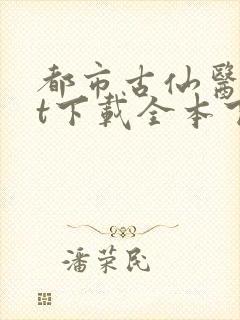 都市古仙醫
t下載全本
潘荣民